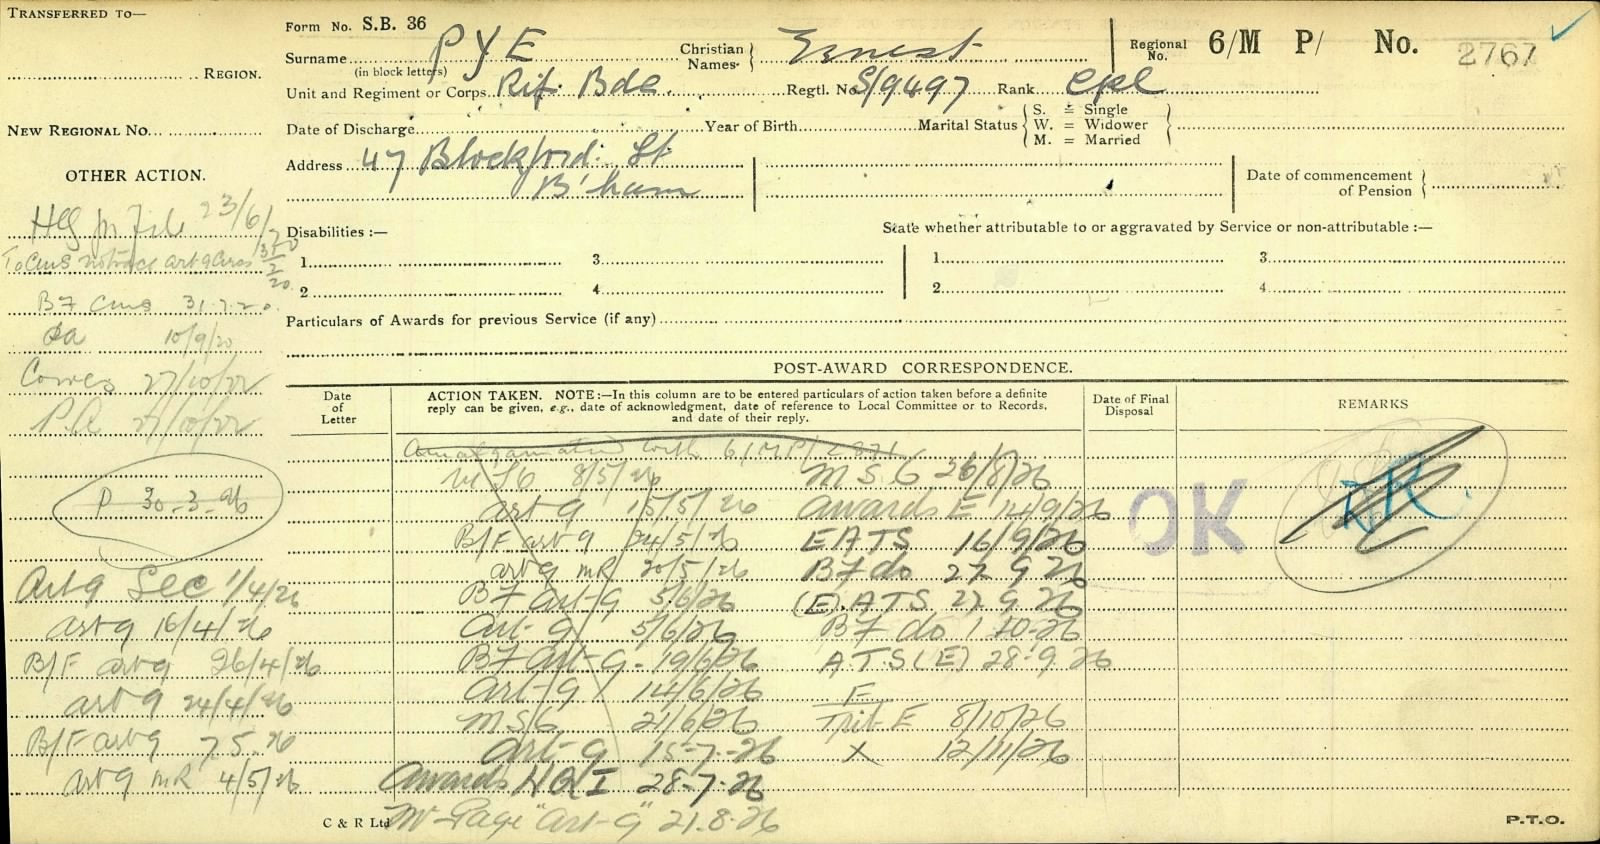 TRANSFERRED TO—
REGION.
NEW REGIONAL No.
Form No. S.B. 36
Surname PYE
(in block letters)
Christian Names Ernest
Regional No. 6/M P/ No. 2767
Unit and Regiment or Corps Rif. Bde. Regtl. No. S/9497 Rank Cpl
Date of Discharge Year of Birth Marital Status { S. = Single W. = Widower M. = Married }
Address 47 St
B'ham
Date of commencement of Pension
Disabilities :—
State whether attributable to or aggravated by Service or non-attributable :—
1 3 1 3
2 4 2 4
Particulars of Awards for previous Service (if any)
OTHER ACTION.
23/6/20
BF Cms 31.7.20.
10/9/20
27/10/22
P.A 27/10/22
P 30-3-26
Art 9 Sec 1/4/26
art 9 16/4/26
B/F art 9 26/4/26
art 9 24/4/26
B/F art 9 7.5.26
art 9 MR 4/5/26
POST-AWARD CORRESPONDENCE.
Date of Letter
ACTION TAKEN. NOTE:—In this column are to be entered particulars of action taken before a definite reply can be given, e.g., date of acknowledgment, date of reference to Local Committee or to Records, and date of their reply.
Date of Final Disposal
REMARKS
Amalgamated with 6/MP/
8/5/26 M.S.6 26/8/26
art 9 15/5/26 Awards E 14/9/26
B/F art 9 24/5/26 EATS 16/9/26
art 9 MR 20/5/26 BF do 27 9 26
BF art-9 5/6/26 (E).ATS 22 9 26
Art-9 5/6/26 BF do 1 10-26
BF art-9. 19/6/26 A.T.S (E) 28.9.26
art-9 14/6/26 F
M.S.6 21/6/26 Trib E 8/10/26
art-9 15-7-26 X 12/11/26
Awards 28-7-26
Mr Page "Art-9" 21.8.26
OK
C & R Ltd
P.T.O.